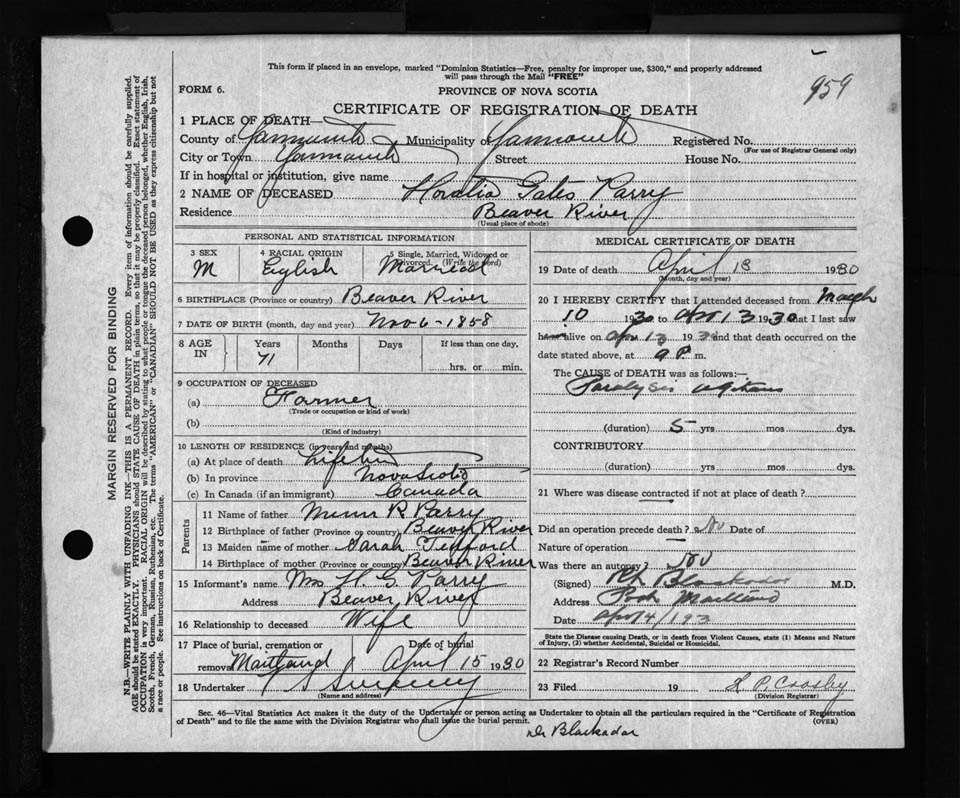 This form if placed in an envelope, marked "Dominion Statistics—Free, penalty for improper use, $300," and properly addressed
will pass through the Mail "FREE"
959
FORM 6.
PROVINCE OF NOVA SCOTIA
CERTIFICATE OF REGISTRATION OF DEATH
1 PLACE OF DEATH—
County of Yarmouth Municipality of Yarmouth Registered No.
(For use of Registrar General only)
City or Town Yarmouth Street House No.
If in hospital or institution, give name
2 NAME OF DECEASED Horatia Gates Parry
Residence Beaver River
(Usual place of abode)
PERSONAL AND STATISTICAL INFORMATION
3 SEX M
4 RACIAL ORIGIN English
5 Single, Married, Widowed or Divorced. (Write the word) Married
6 BIRTHPLACE (Province or country) Beaver River
7 DATE OF BIRTH (month, day and year) Nov 6-1858
8 AGE IN Years 71 Months Days If less than one day,
hrs. or min.
9 OCCUPATION OF DECEASED
(a) Farmer
(Trade or occupation or kind of work)
(b)
(Kind of industry)
10 LENGTH OF RESIDENCE (in years and months)
(a) At place of death
(b) In province Nova Scotia
(c) In Canada (if an immigrant) Canada
Parents
11 Name of father R Parry
12 Birthplace of father (Province or country) Beaver River
13 Maiden name of mother Sarah Tedford
14 Birthplace of mother (Province or country) Beaver River
15 Informant's name Mrs H. G. Parry
Address Beaver River
16 Relationship to deceased Wife
17 Place of burial, cremation or Date of burial
removal Maitland April 15 1930
18 Undertaker Sweeney
(Name and address)
MEDICAL CERTIFICATE OF DEATH
19 Date of death April 13 1930
(Month, day and year)
20 I HEREBY CERTIFY that I attended deceased from March
10 1930 to Apr 13 1930 that I last saw
him alive on Apr 13 1930 and that death occurred on the
date stated above, at 9 P. m.
The CAUSE of DEATH was as follows:—
Paralysis agitans
(duration) 5 yrs mos dys.
CONTRIBUTORY
(duration) yrs mos dys.
21 Where was disease contracted if not at place of death?
Did an operation precede death? No Date of
Nature of operation
Was there an autopsy? No
(Signed) Blackadar M.D.
Address Port Maitland
Date Apr 14/193
State the Disease causing Death, or in death from Violent Causes, state (1) Means and Nature
of Injury, (2) whether Accidental, Suicidal or Homicidal.
22 Registrar's Record Number
23 Filed 19 H P. Crosby
(Division Registrar)
Sec. 46—Vital Statistics Act makes it the duty of the Undertaker or person acting as Undertaker to obtain all the particulars required in the "Certificate of Registration
of Death" and to file the same with the Division Registrar who shall issue the burial permit.
(OVER)
Dr Blackadar
MARGIN RESERVED FOR BINDING
N.B.—WRITE PLAINLY WITH UNFADING INK—THIS IS A PERMANENT RECORD. Every item of information should be carefully supplied.
AGE should be stated EXACTLY. PHYSICIANS should STATE CAUSE OF DEATH in plain terms, so that it may be properly classified. Exact statement of
OCCUPATION is very important. RACIAL ORIGIN will be described by stating to what people or tongue the deceased person belonged, whether English, Irish,
Scotch, French, German, Russian, Ruthenian, etc. The terms "AMERICAN" or "CANADIAN" SHOULD NOT BE USED as they express citizenship but not
a race or people. See instructions on back of Certificate.